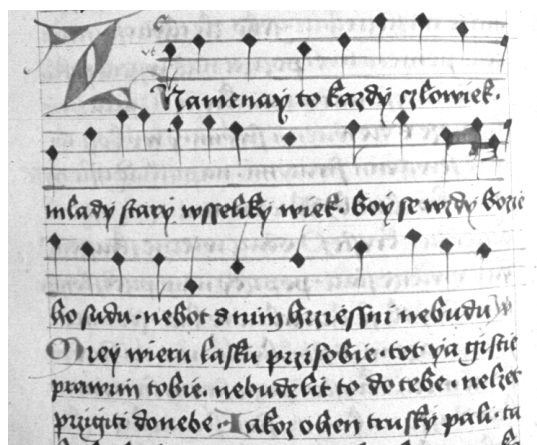 Znamenay to kazdy czlowiek.
mlady stary wsseliky wiek. boy se wzdy bozie
ho sudu. nebot s nim hrziessni nebudu
Mrey wieru lasku przi sobie. tot ya gistie
prawim tobie. nebudelit to do tebe. nelzet
przigiti do nebe. Iakoz ohen trusky pali. ta